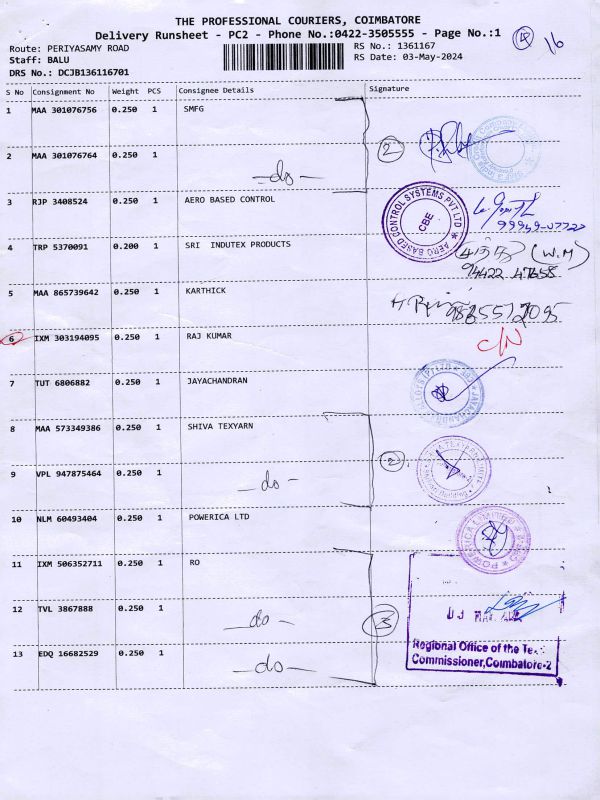 THE PROFESSIONAL COURIERS, COIMBATORE
Delivery Runsheet - PC2 - Phone No.:0422-3505555 - Page No.:1
16
Route: PERIYASAMY ROAD
RS No.: 1361167
Staff: BALU
RS Date: 03-May-2024
DRS No.: DCJB136116701
S No Consignment No Weight PCS Consignee Details Signature
1 MAA 301076756 0.250 1 SMFG
2
2 MAA 301076764 0.250 1
-do-
3 RJP 3408524 0.250 1 AERO BASED CONTROL
AERO BASED CONTROL SYSTEMS PVT LTD
CBE
4 TRP 5370091 0.200 1 SRI INDUTEX PRODUCTS
(W.M)
94422 47658
5 MAA 865739642 0.250 1 KARTHICK
6 IXM 303194095 0.250 1 RAJ KUMAR
C/N
7 TUT 6806882 0.250 1 JAYACHANDRAN
8 MAA 573349386 0.250 1 SHIVA TEXYARN
2
9 VPL 947875464 0.250 1
-do-
10 NLM 60493404 0.250 1 POWERICA LTD
POWERICA LIMITED
11 IXM 506352711 0.250 1 RO
12 TVL 3867888 0.250 1
-do-
3
Regional Office of the
Commissioner,Coimbatore-2
13 EDQ 16682529 0.250 1
-do-